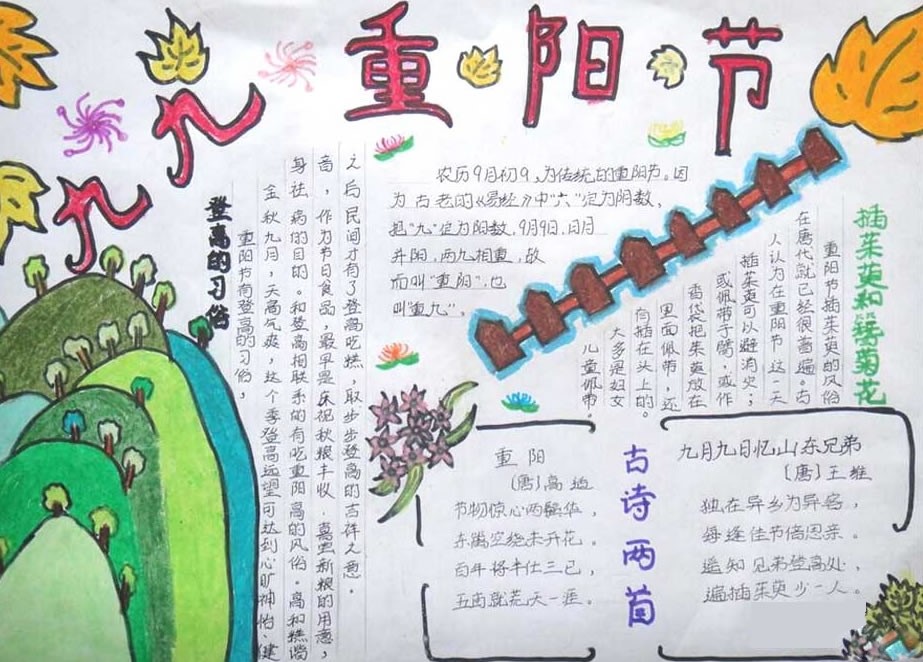 九九重阳节
登高的习俗
重阳节有登高的习俗，
金秋九月，天高气爽，这个季登高远望可达到心旷神怡、健
身祛病的目的。和登高相联系的有吃重阳高的风俗。高和糕谐
音，作为节日食品，最早是庆祝秋粮丰收、喜尝新粮的用意，
之后民间才有了登高吃糕，取步步登高的吉祥之意。
农历9月初9，为传统的重阳节。因
为古老的《易经》中“六”定为阴数，
把“九”定为阳数，9月9日，日月
并阳，两九相重，故
而叫“重阳”，也
叫“重九”。
插茱萸和簪菊花
重阳节插茱萸的风俗
在唐代就已经很普遍。古
人认为在重阳节这一天
插茱萸可以避消灾；
或佩带于臂，或作
香袋把茱萸放在
里面佩带，还
有插在头上的。
大多是妇女
儿童佩带。
重阳
〔唐〕高适
节物惊心两鬓华，
东篱空绕未开花。
百年将半仕三已，
五亩就荒天一涯。
古诗两首
九月九日忆山东兄弟
〔唐〕王维
独在异乡为异客，
每逢佳节倍思亲。
遥知兄弟登高处，
遍插茱萸少一人。